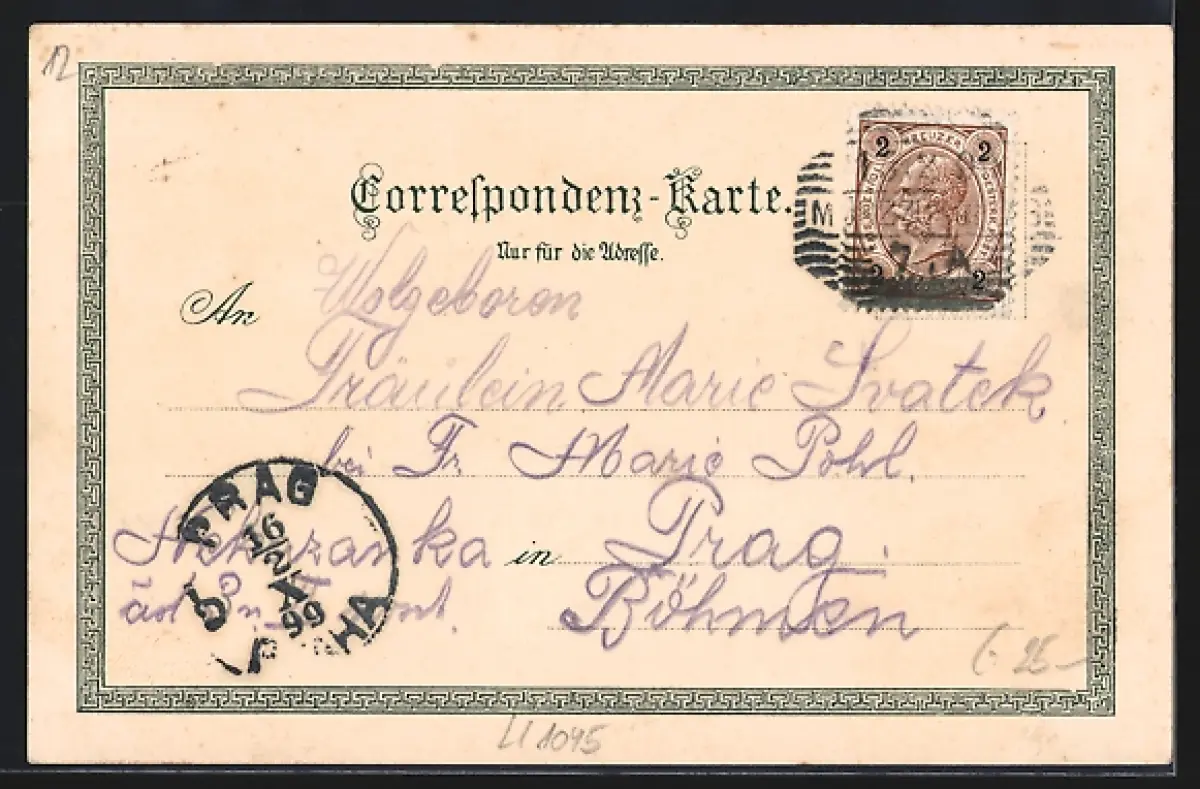 12
Correspondenz-Karte.
Nur für die Adresse.
2 KREUZER 2
2 2
M
An Wolgeboren
Fräulein Marie Svatek
bei Fr Marie Pohl.
Nekazanka in Prag.
Böhmen
PRAG
16/2
X
99
PRAHA
25-
LI 1045